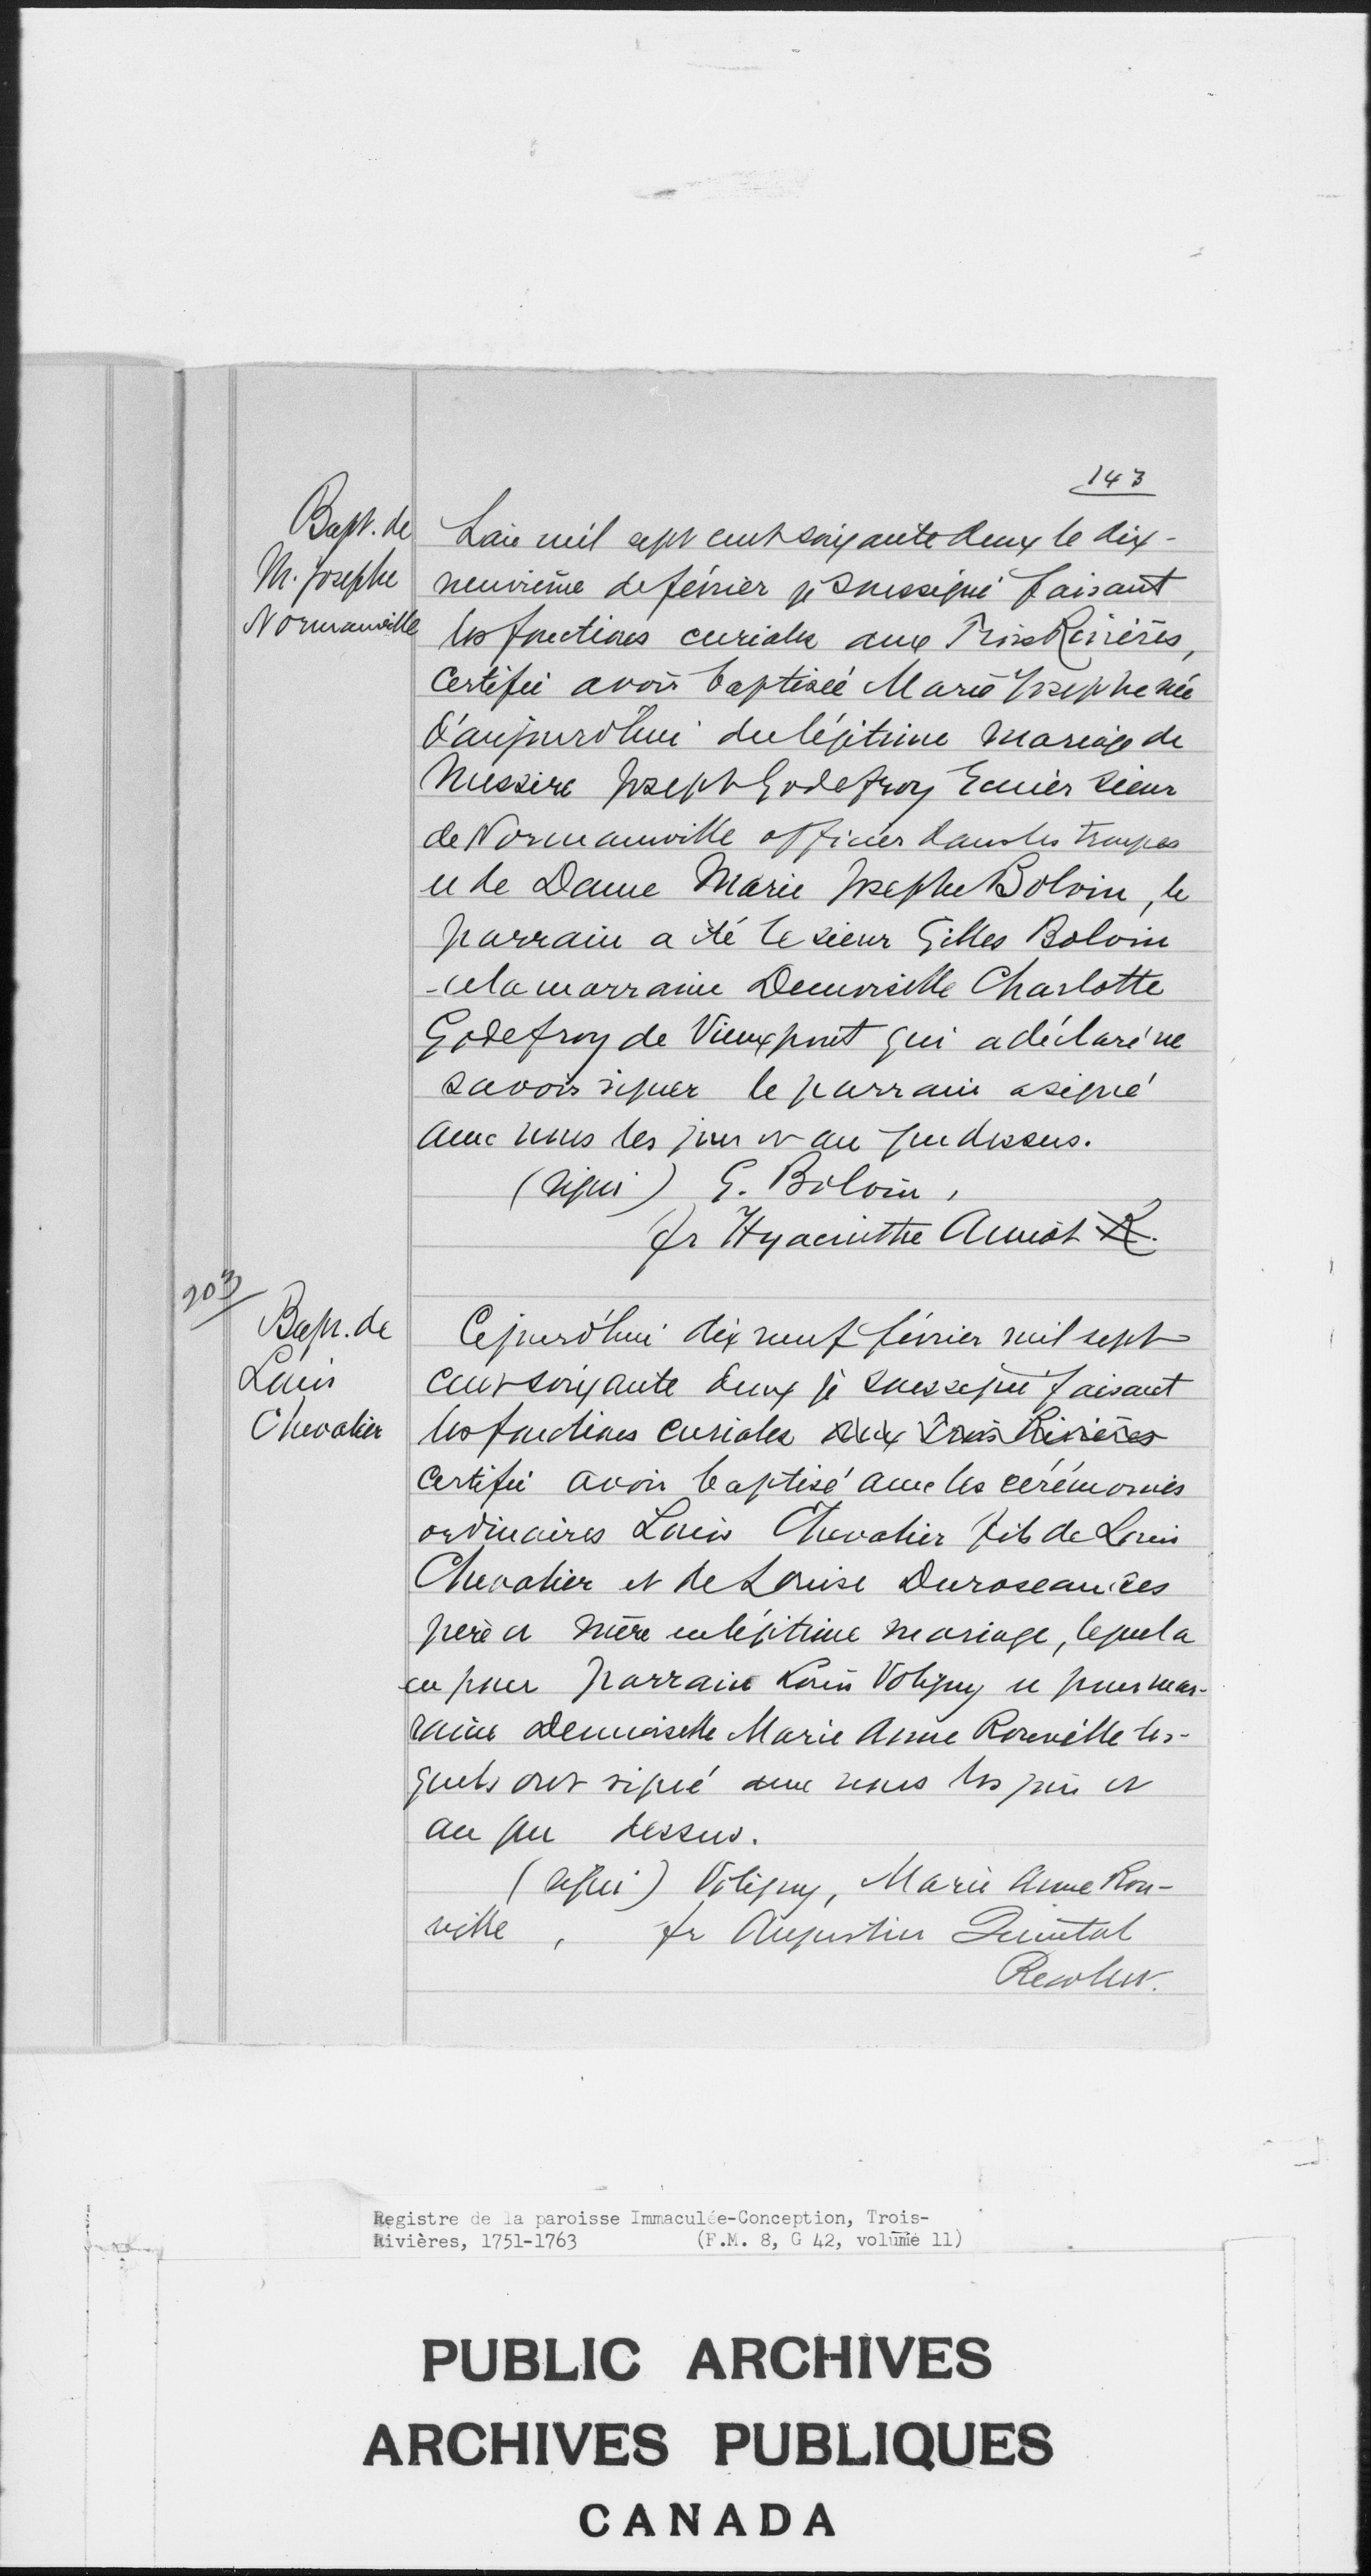 143
Bapt. de
M. Josephe
Normanville
L'an mil sept cent soixante deux le dix-
neuvième de février je soussigné faisant
les fonctions curiales aux Trois Rivières,
certifie avoir baptisée Marie Josephe née
d'aujourd'hui du légitime mariage de
Messire Joseph Godefroy Ecuier sieur
de Normanville officier dans les troupes
et de Dame Marie Josephe Bolvin, le
parrain a été le sieur Gilles Bolvin
et la marraine Demoiselle Charlotte
Godefroy de Vieuxpont qui a déclaré ne
savoir signer le parrain a signé
avec nous les jour et an que dessus.
(signé) G. Bolvin,
fr Hyacinthe Amiot R.
203
Bapt. de
Louis
Chevalier
Cejourd'hui dix neuf février mil sept
cent soixante deux je soussigné faisant
les fonctions curiales aux Trois Rivières
certifie avoir baptisé avec les cérémonies
ordinaires Louis Chevalier fils de Louis
Chevalier et de Louise Duroseau ses
père et mère en légitime mariage, lequel a
eu pour parrain Louis Voligny et pour mar-
raine Demoiselle Marie Anne Rouville les-
quels ont signé avec nous les jour et
an que dessus.
(signé) Voligny, Marie Anne Rou-
ville, fr Augustin Quintal
Recollet.
Registre de la paroisse Immaculée-Conception, Trois-
Rivières, 1751-1763 (F.M. 8, G 42, volume 11)
PUBLIC ARCHIVES
ARCHIVES PUBLIQUES
CANADA